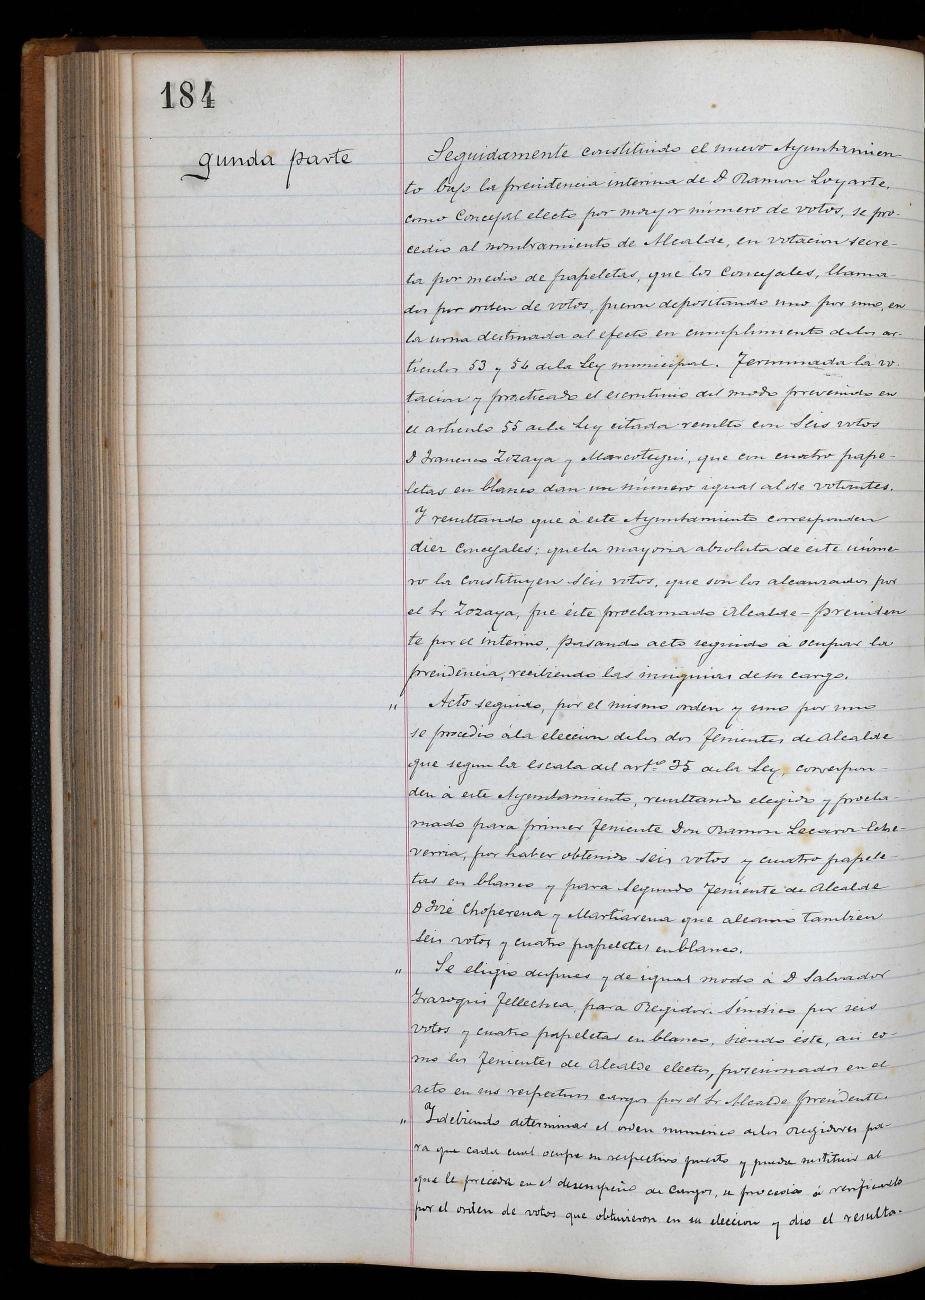 184
gunda parte
Seguidamente constituido el nuevo Ayuntamien-
to bajo la presidencia interina de D Ramon Loyarte,
como Concejal electo por mayor número de votos, se pro-
cedio al nombramiento de Alcalde, en votacion secre-
ta por medio de papeletas, que los Concejales, llama-
dos por orden de votos, fueron depositando uno por uno, en
la urna destinada al efecto en cumplimiento delos ar-
ticulos 53 y 54 dela Ley municipal. Terminada la vo-
tacion y practicado el escrutinio del modo prevenido en
el articulo 55 dela Ley citada resultó con Seis votos
D Francisco Zozaya y Marcotegui, que con cuatro pape-
letas en blanco dan un número igual al de votantes.
Y resultando que á este Ayuntamiento corresponden
diez Concejales; quela mayoria absoluta de este núme-
ro la constituyen seis votos, que son los alcanzados por
el Sr Zozaya, fue éste proclamado Alcalde-Presiden
te por el interino, pasando acto seguido á ocupar la
presidencia, recibiendo las insignias de su cargo.
" Acto seguido, por el mismo orden y uno por uno
se procedió ála eleccion delos dos Tenientes de Alcalde
que segun la escala del artº 35 dela Ley, correspon-
den á este Ayuntamiento, resultando elegido y procla-
mado para primer Teniente Don Ramon Lecaroz Eche-
verria, por haber obtenido seis votos y cuatro papele-
tas en blanco y para Segundo Teniente de Alcalde
D José Choperena y Martiarena que alcanzó tambien
seis votos y cuatro papeletas en blanco.
" Se eligió despues y de igual modo á D Salvador
Irazoqui Tellechea, para Regidor Síndico por seis
votos y cuatro papeletas en blanco, siendo éste, asi co-
mo los Tenientes de Alcalde electos, posesionados en el
acto en sus respectivos cargos por el Sr Alcalde presidente.
" Y debiendo determinar el orden numerico delos Regidores pa-
ra que cada cual ocupe su respectivo puesto y pueda sustituir al
que le preceda en el desempeño de cargos, se procedió á verificarlo
por el orden de votos que obtuvieron en su eleccion y dio el resulta-